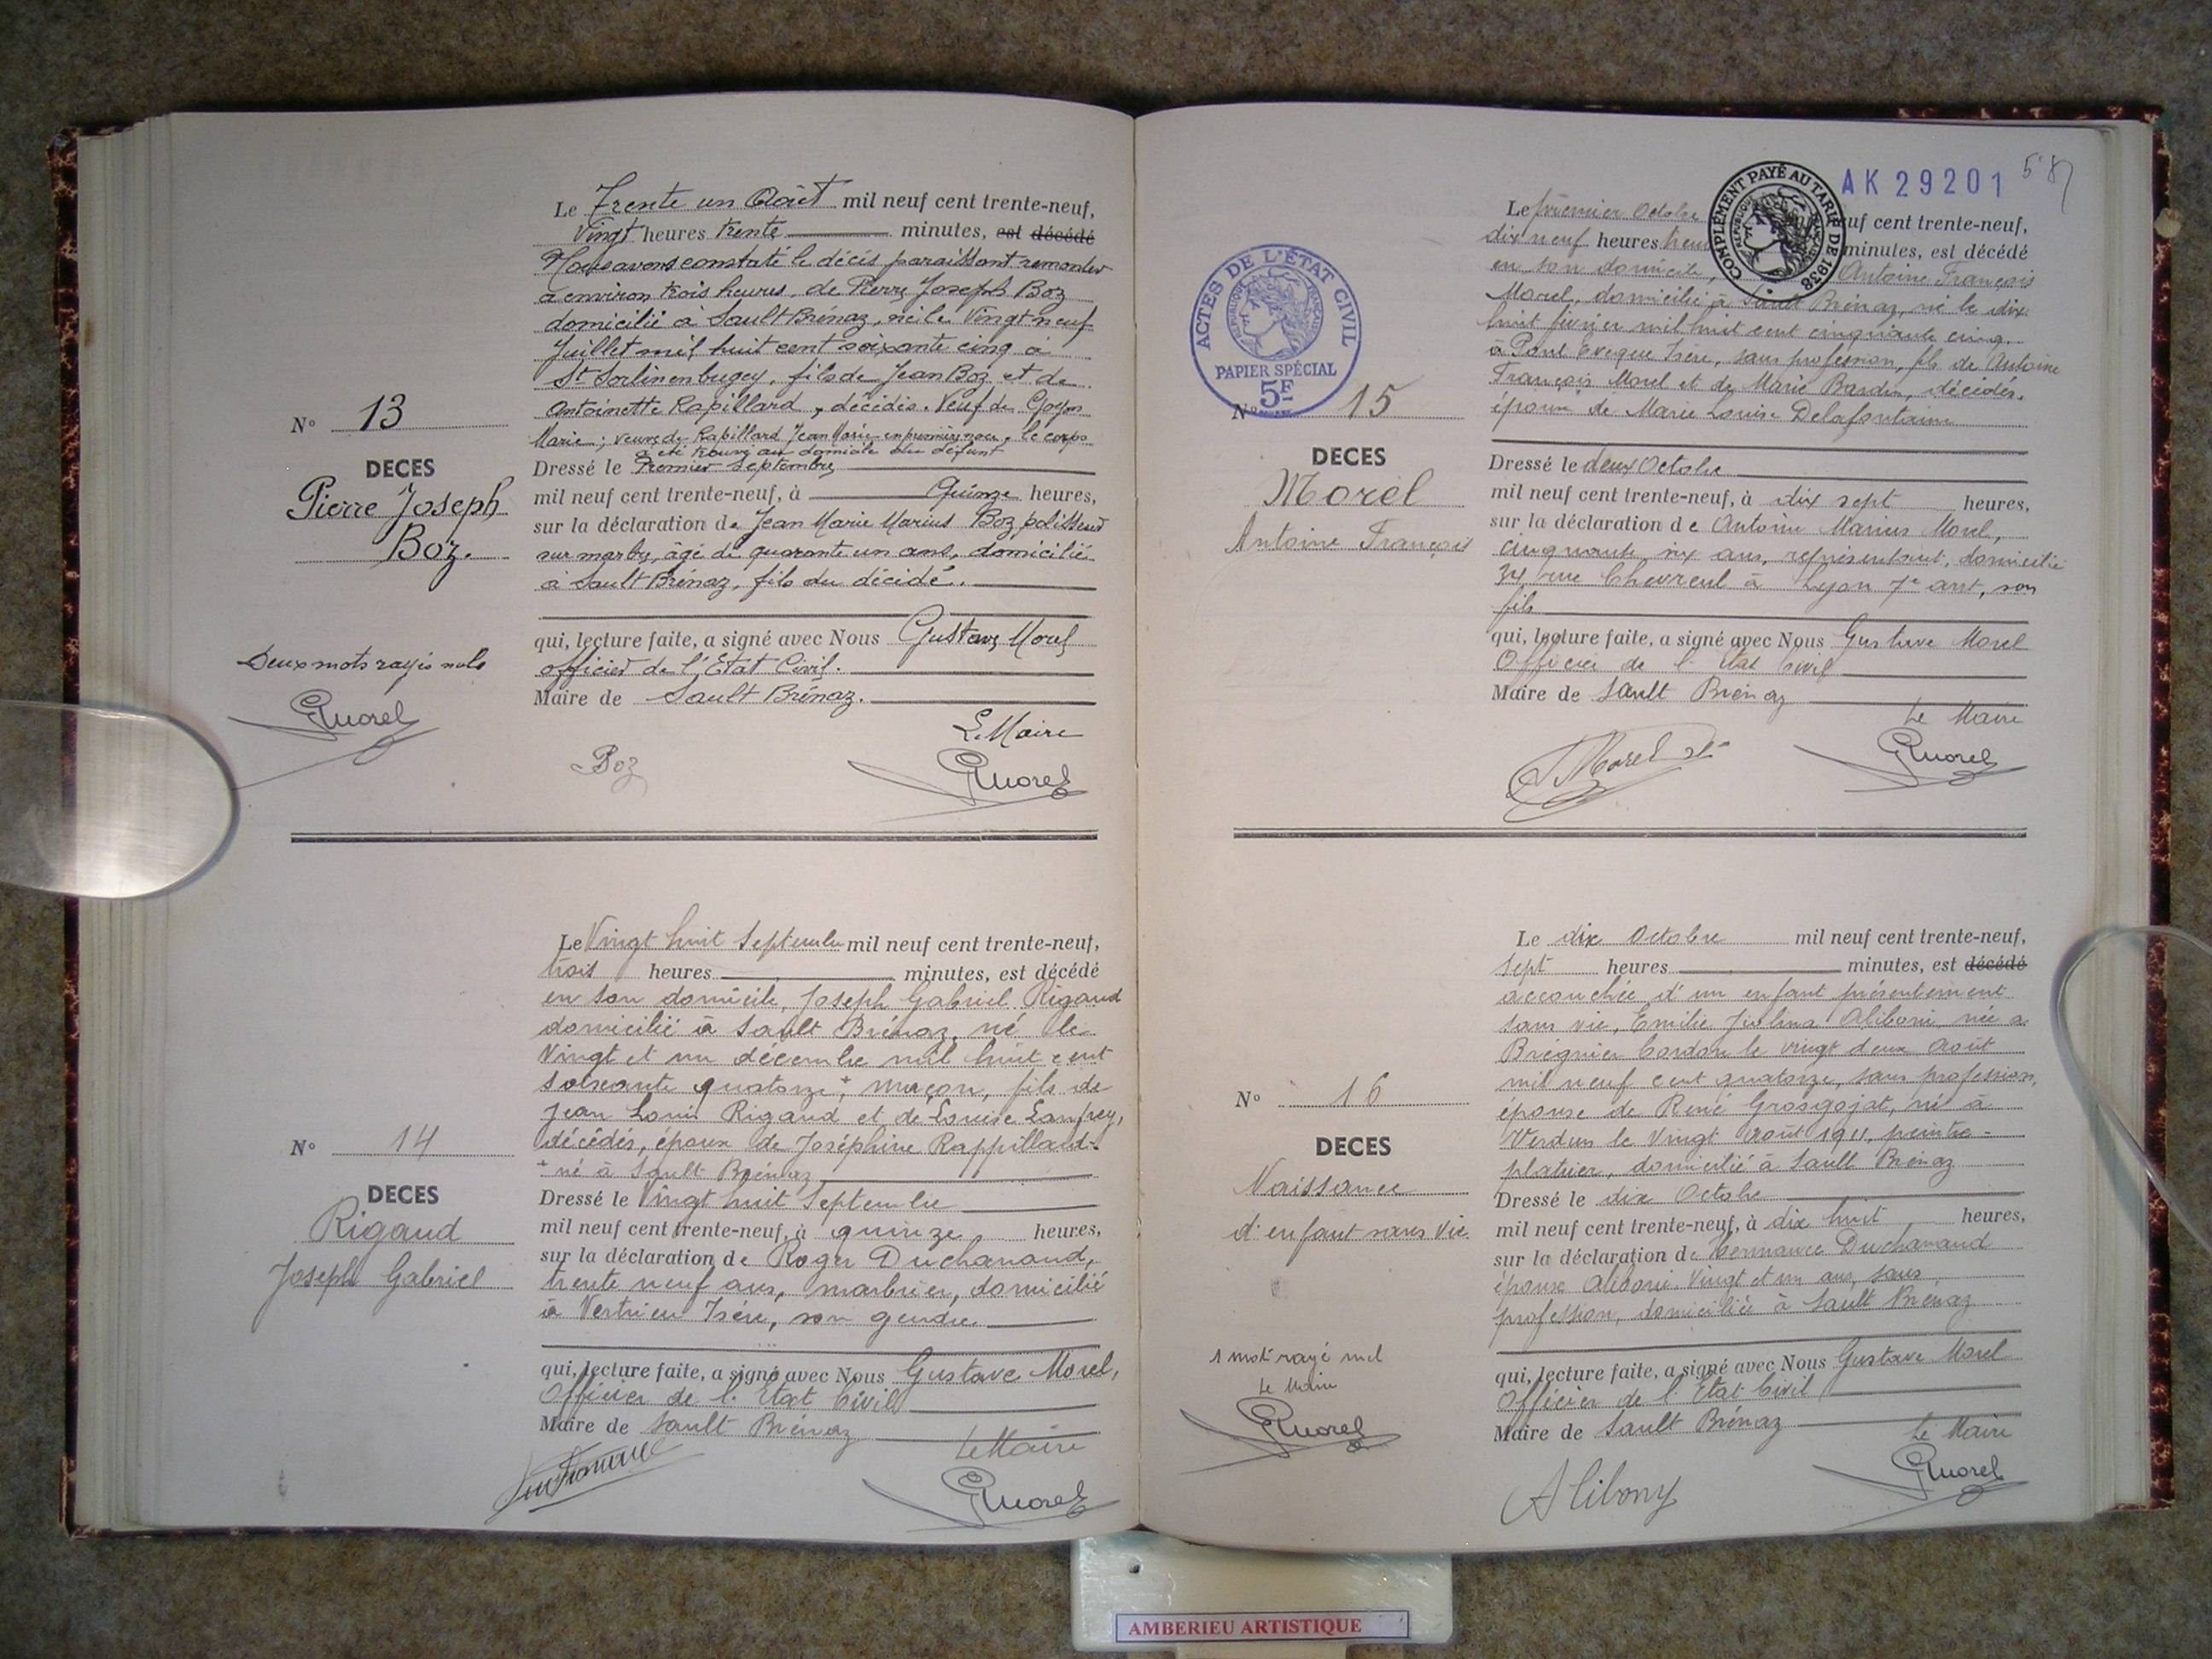 Le Trente un Août mil neuf cent trente-neuf,
Vingt heures trente minutes, est décédé
Nous avons constaté le décès paraissant remonter
à environ trois heures, de Pierre Joseph Boz
domicilié à Sault Brénaz, né le Vingt neuf
Juillet mil huit cent soixante cinq à
St Sorlin en bugey, fils de Jean Boz et de
Antoinette Rapillard, décédés. Veuf de Goyon
Marie; veuve de Rapillard Jean Marie en première noce, le corps
a été trouvé au domicile du défunt
N° 13
DECES
Pierre Joseph
Boz.
Dressé le Premier Septembre
mil neuf cent trente-neuf, à Quinze heures,
sur la déclaration de Jean Marie Marius Boz polisseur
sur marbre, âgé de quarante un ans, domicilié
à Sault Brénaz, fils du décédé.
qui, lecture faite, a signé avec Nous Gustave Morel
officier de l'Etat Civil.
Maire de Sault Brénaz.
Deux mots rayés nuls
GMorel
Le Maire
Boz
GMorel
Le Vingt huit Septembre mil neuf cent trente-neuf,
trois heures minutes, est décédé
en son domicile, Joseph Gabriel Rigaud
domicilié à Sault Brénaz, né le
Vingt et un décembre mil huit cent
soixante quatorze +, maçon, fils de
Jean Louis Rigaud et de Louise Lanfrey,
décédés, époux de Joséphine Rappillard.
+ né à Sault Brénaz
N° 14
DECES
Rigaud
Joseph Gabriel
Dressé le Vingt huit Septembre
mil neuf cent trente-neuf, à quinze heures,
sur la déclaration de Roger Duchanaud,
trente neuf ans, marbrier, domicilié
à Vertrieu Isère, son gendre
qui, lecture faite, a signé avec Nous Gustave Morel,
Officier de l'Etat Civil
Maire de Sault Brénaz
Le Maire
GMorel
AK 29201
58
COMPLÉMENT PAYÉ AU TARIF DE 1938
RÉPUBLIQUE FRANÇAISE
ACTES DE L'ÉTAT CIVIL
RÉPUBLIQUE FRANÇAISE
PAPIER SPÉCIAL
5F
Le premier Octobre neuf cent trente-neuf,
dix neuf heures minutes, est décédé
en son domicile, Antoine François
Morel, domicilié à Sault Brénaz, né le dix
huit février mil huit cent cinquante cinq.
à Pont Evêque Isère, sans profession, fils de Antoine
François Morel et de Marie Bardin, décédés.
époux de Marie Louise Delafontaine
N° 15
DECES
Morel
Antoine François
Dressé le deux Octobre
mil neuf cent trente-neuf, à dix sept heures,
sur la déclaration de Antoine Marius Morel,
cinquante six ans, représentant, domicilié
rue Chevreul à Lyon 7e arrt, son
fils
qui, lecture faite, a signé avec Nous Gustave Morel
Officier de l'Etat Civil
Maire de Sault Brénaz
Le Maire
Morel
GMorel
Le dix Octobre mil neuf cent trente-neuf,
sept heures minutes, est décédé
accouchée d'un enfant présentement
sans vie, Emilie Julina Aliboni, née à
Brégnier Cordon le vingt deux Août
mil neuf cent quatorze, sans profession,
épouse de René Grosgojat, né à
Verdun le Vingt Août 1911, peintre-
platrier, domicilié à Sault Brénaz
N° 16
DECES
Naissance
d'enfant sans vie.
Dressé le dix Octobre
mil neuf cent trente-neuf, à dix huit heures,
sur la déclaration de Hermance Duchanaud
épouse Aliboni. Vingt et un ans, sans
profession, domiciliée à Sault Brénaz
qui, lecture faite, a signé avec Nous Gustave Morel
Officier de l'Etat Civil
Maire de Sault Brénaz
1 mot rayé nul
Le Maire
GMorel
Le Maire
Alibony
GMorel
AMBERIEU ARTISTIQUE